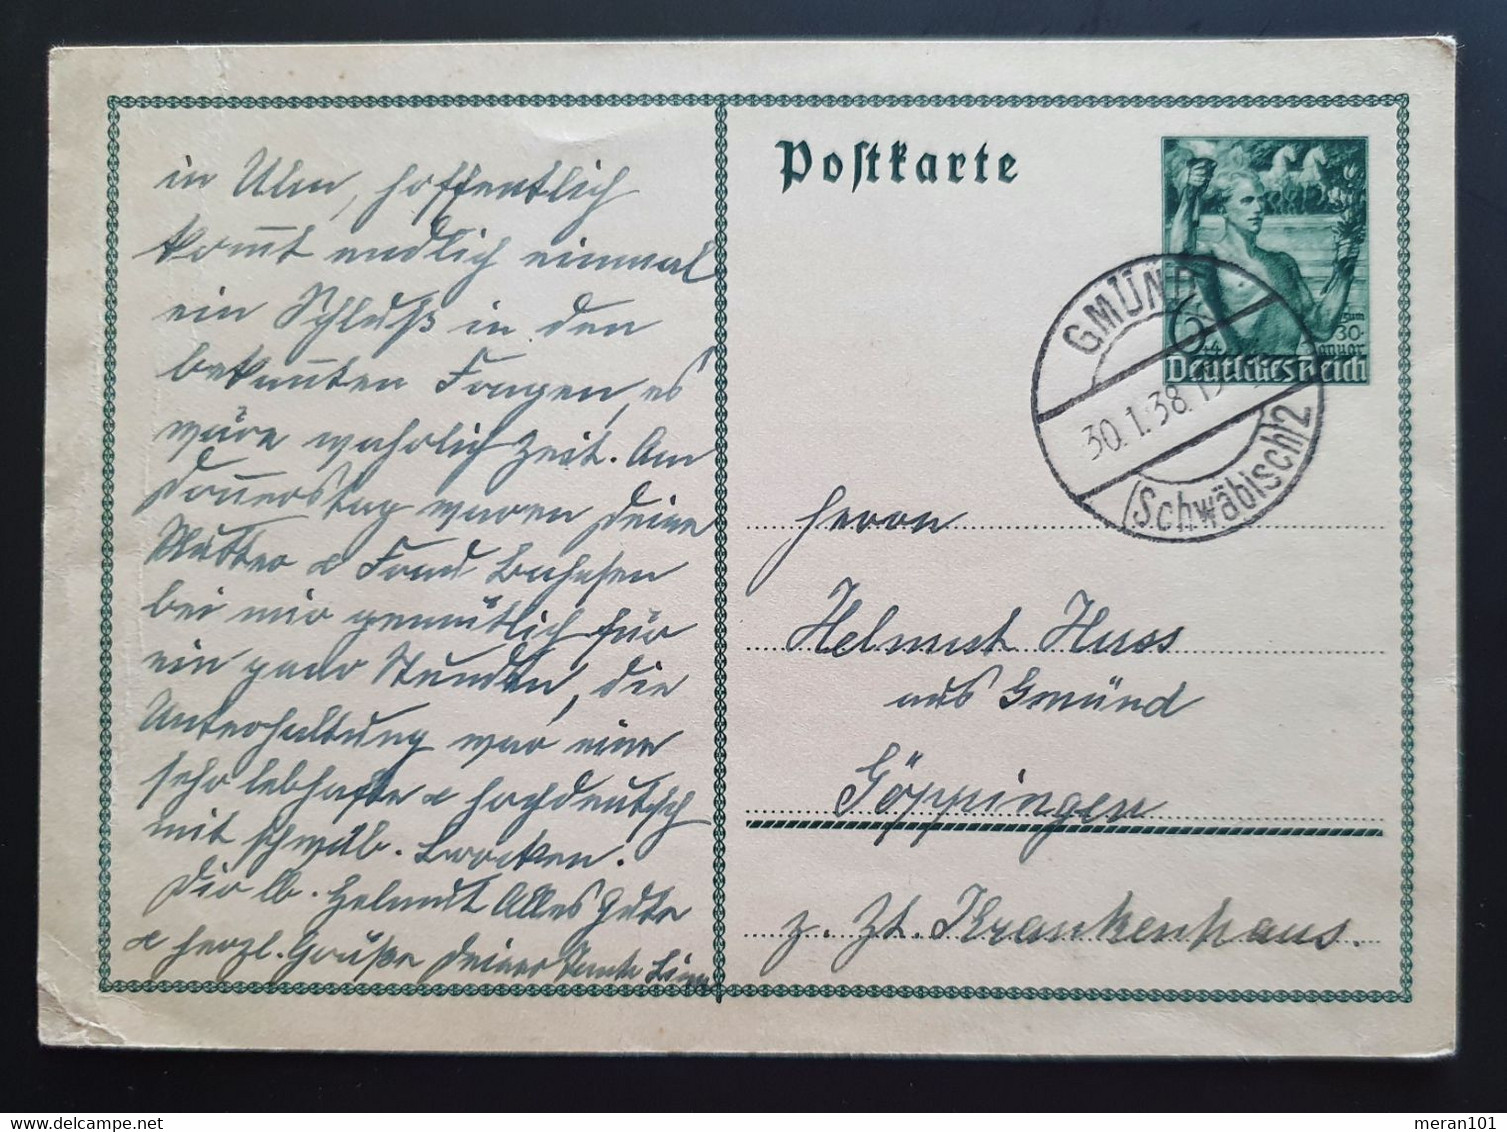 in Ulm, hoffentlich
kom̅t endlich einmal
ein Schluß in den
bekan̅ten Fragen, es
wäre wahrlich Zeit. Am
Donnerstag waren Deine
Mutter & Frau
bei mir gemütlich für
ein paar Stunden, die
Unterhaltung war eine
sehr lebhafte & hochdeutsch
mit schwäb. Brocken.
Dir lb. Helmut Alles Gute
& herzl. Grüße Deiner Tante
Postkarte
zum
30.
Januar
6+4
Deutsches Reich
GMÜND
30.1.38.19
(Schwäbisch) 2
Herrn
Helmut Huss
aus Gmünd
Göppingen
z. Zt. Krankenhaus.
meran101